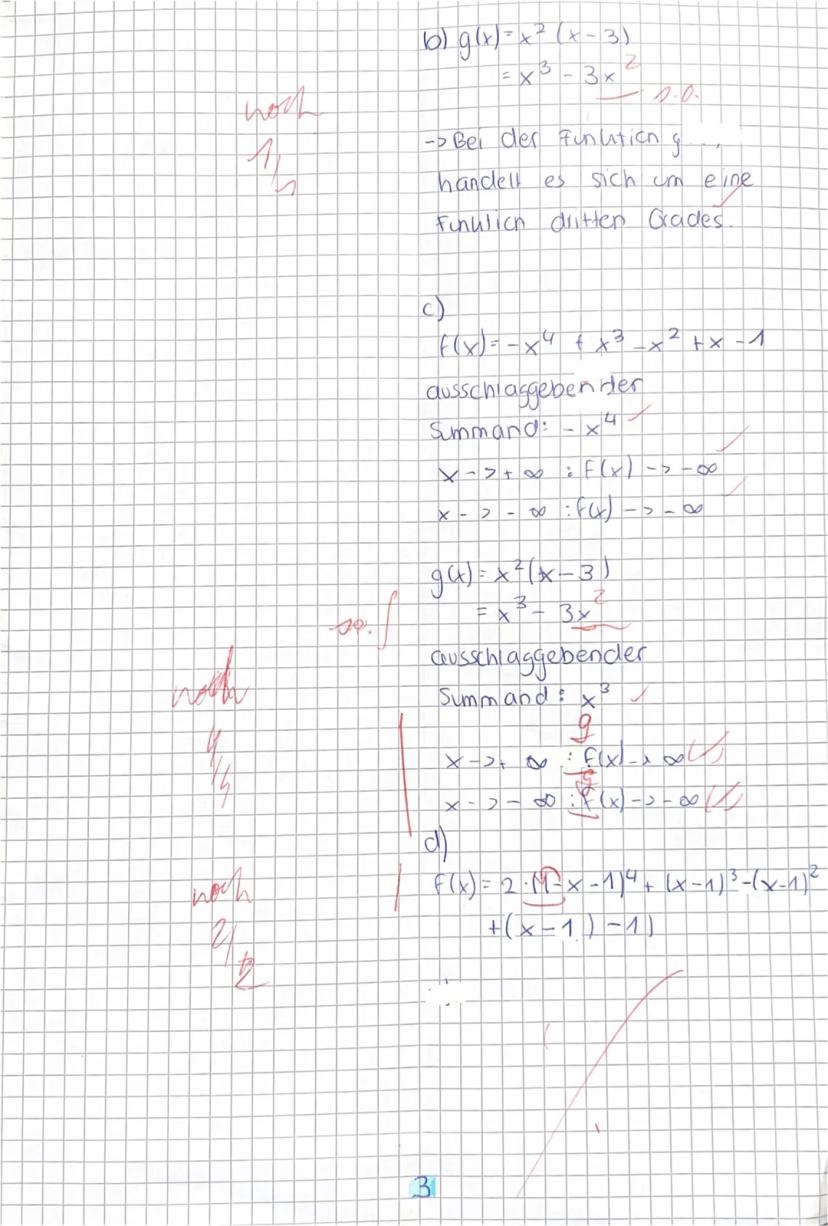 b) g(x) = x² (x - 3)
= x³ - 3x²
s.o.
noch
1/1
-> Bei der Funktion g
handelt es sich um eine
Funktion dritten Grades.
c)
f(x) = -x⁴ + x³ - x² + x - 1
ausschlaggebender
Summand: - x⁴ ✓
x -> + ∞ : f(x) -> - ∞ ✓
x -> - ∞ : f(x) -> - ∞ ✓
g(x) = x² (x - 3)
= x³ - 3x²
so. ∫
ausschlaggebender
noch
Summand: x³ ✓
4/4
g
x -> + ∞ : f(x) -> ∞ (✓)
g
x -> - ∞ : f(x) -> - ∞ (✓)
d)
noch
f(x) = 2 · (1 - x - 1)⁴ + (x - 1)³ - (x - 1)²
2/2
+ (x - 1) - 1)
3